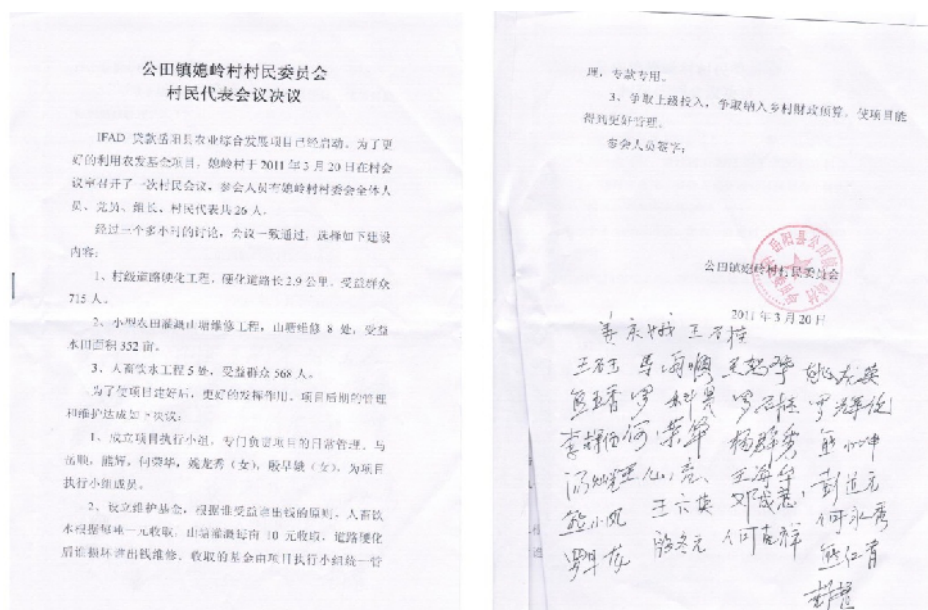 公田镇媳岭村村民委员会
村民代表会议决议
IFAD 贷款岳阳县农业综合发展项目已经启动。为了更
好的利用农发基金项目，媳岭村于 2011 年 3 月 20 日在村会
议室召开了一次村民会议，参会人员有媳岭村村委会全体人
员、党员、组长、村民代表共 26 人。
经过一个多小时的讨论，会议一致通过，选择如下建设
内容：
1、村级道路硬化工程，硬化道路长 2.9 公里，受益群众
715 人。
2、小型农田灌溉山塘维修工程，山塘维修 8 处，受益
水田面积 352 亩。
3、人畜饮水工程 5 处，受益群众 568 人。
为了使项目建好后，更好的发挥作用，项目后期的管理
和维护达成如下决议：
1、成立项目执行小组，专门负责项目的日常管理。马
岳顺，熊辉，何荣华，姚龙秀（女），殷早娥（女），为项目
执行小组成员。
2、设立维护基金，根据谁受益谁出钱的原则，人畜饮
水根据每吨一元收取，山塘灌溉每亩 10 元收取，道路硬化
后谁损坏谁出钱维修，收取的基金由项目执行小组统一管
理，专款专用。
3、争取上级投入，争取纳入乡村财政预算，使项目能
得到更好管理。
参会人员签字：
公田镇媳岭村村民委员会
2011 年 3 月 20 日
王石桂
罗石桂
杨群秀
王海军
王六英
彭道元
熊小凤
殷冬元
何吉祥
何永秀
熊仁青